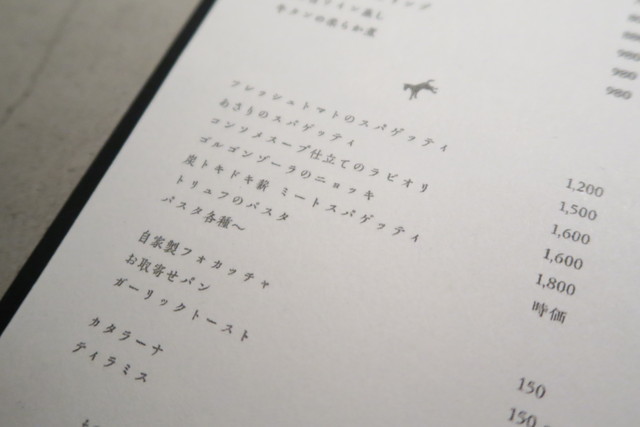 牛タンの柔らか煮
980
980
フレッシュトマトのスパゲッティ 1,200
あさりのスパゲッティ 1,500
コンソメスープ仕立てのラビオリ 1,600
ゴルゴンゾーラのニョッキ 1,600
炭トキドキ薪 ミートスパゲッティ 1,800
トリュフのパスタ 時価
パスタ各種〜
自家製フォカッチャ 150
お取寄せパン 150
ガーリックトースト
カタラーナ
ティラミス